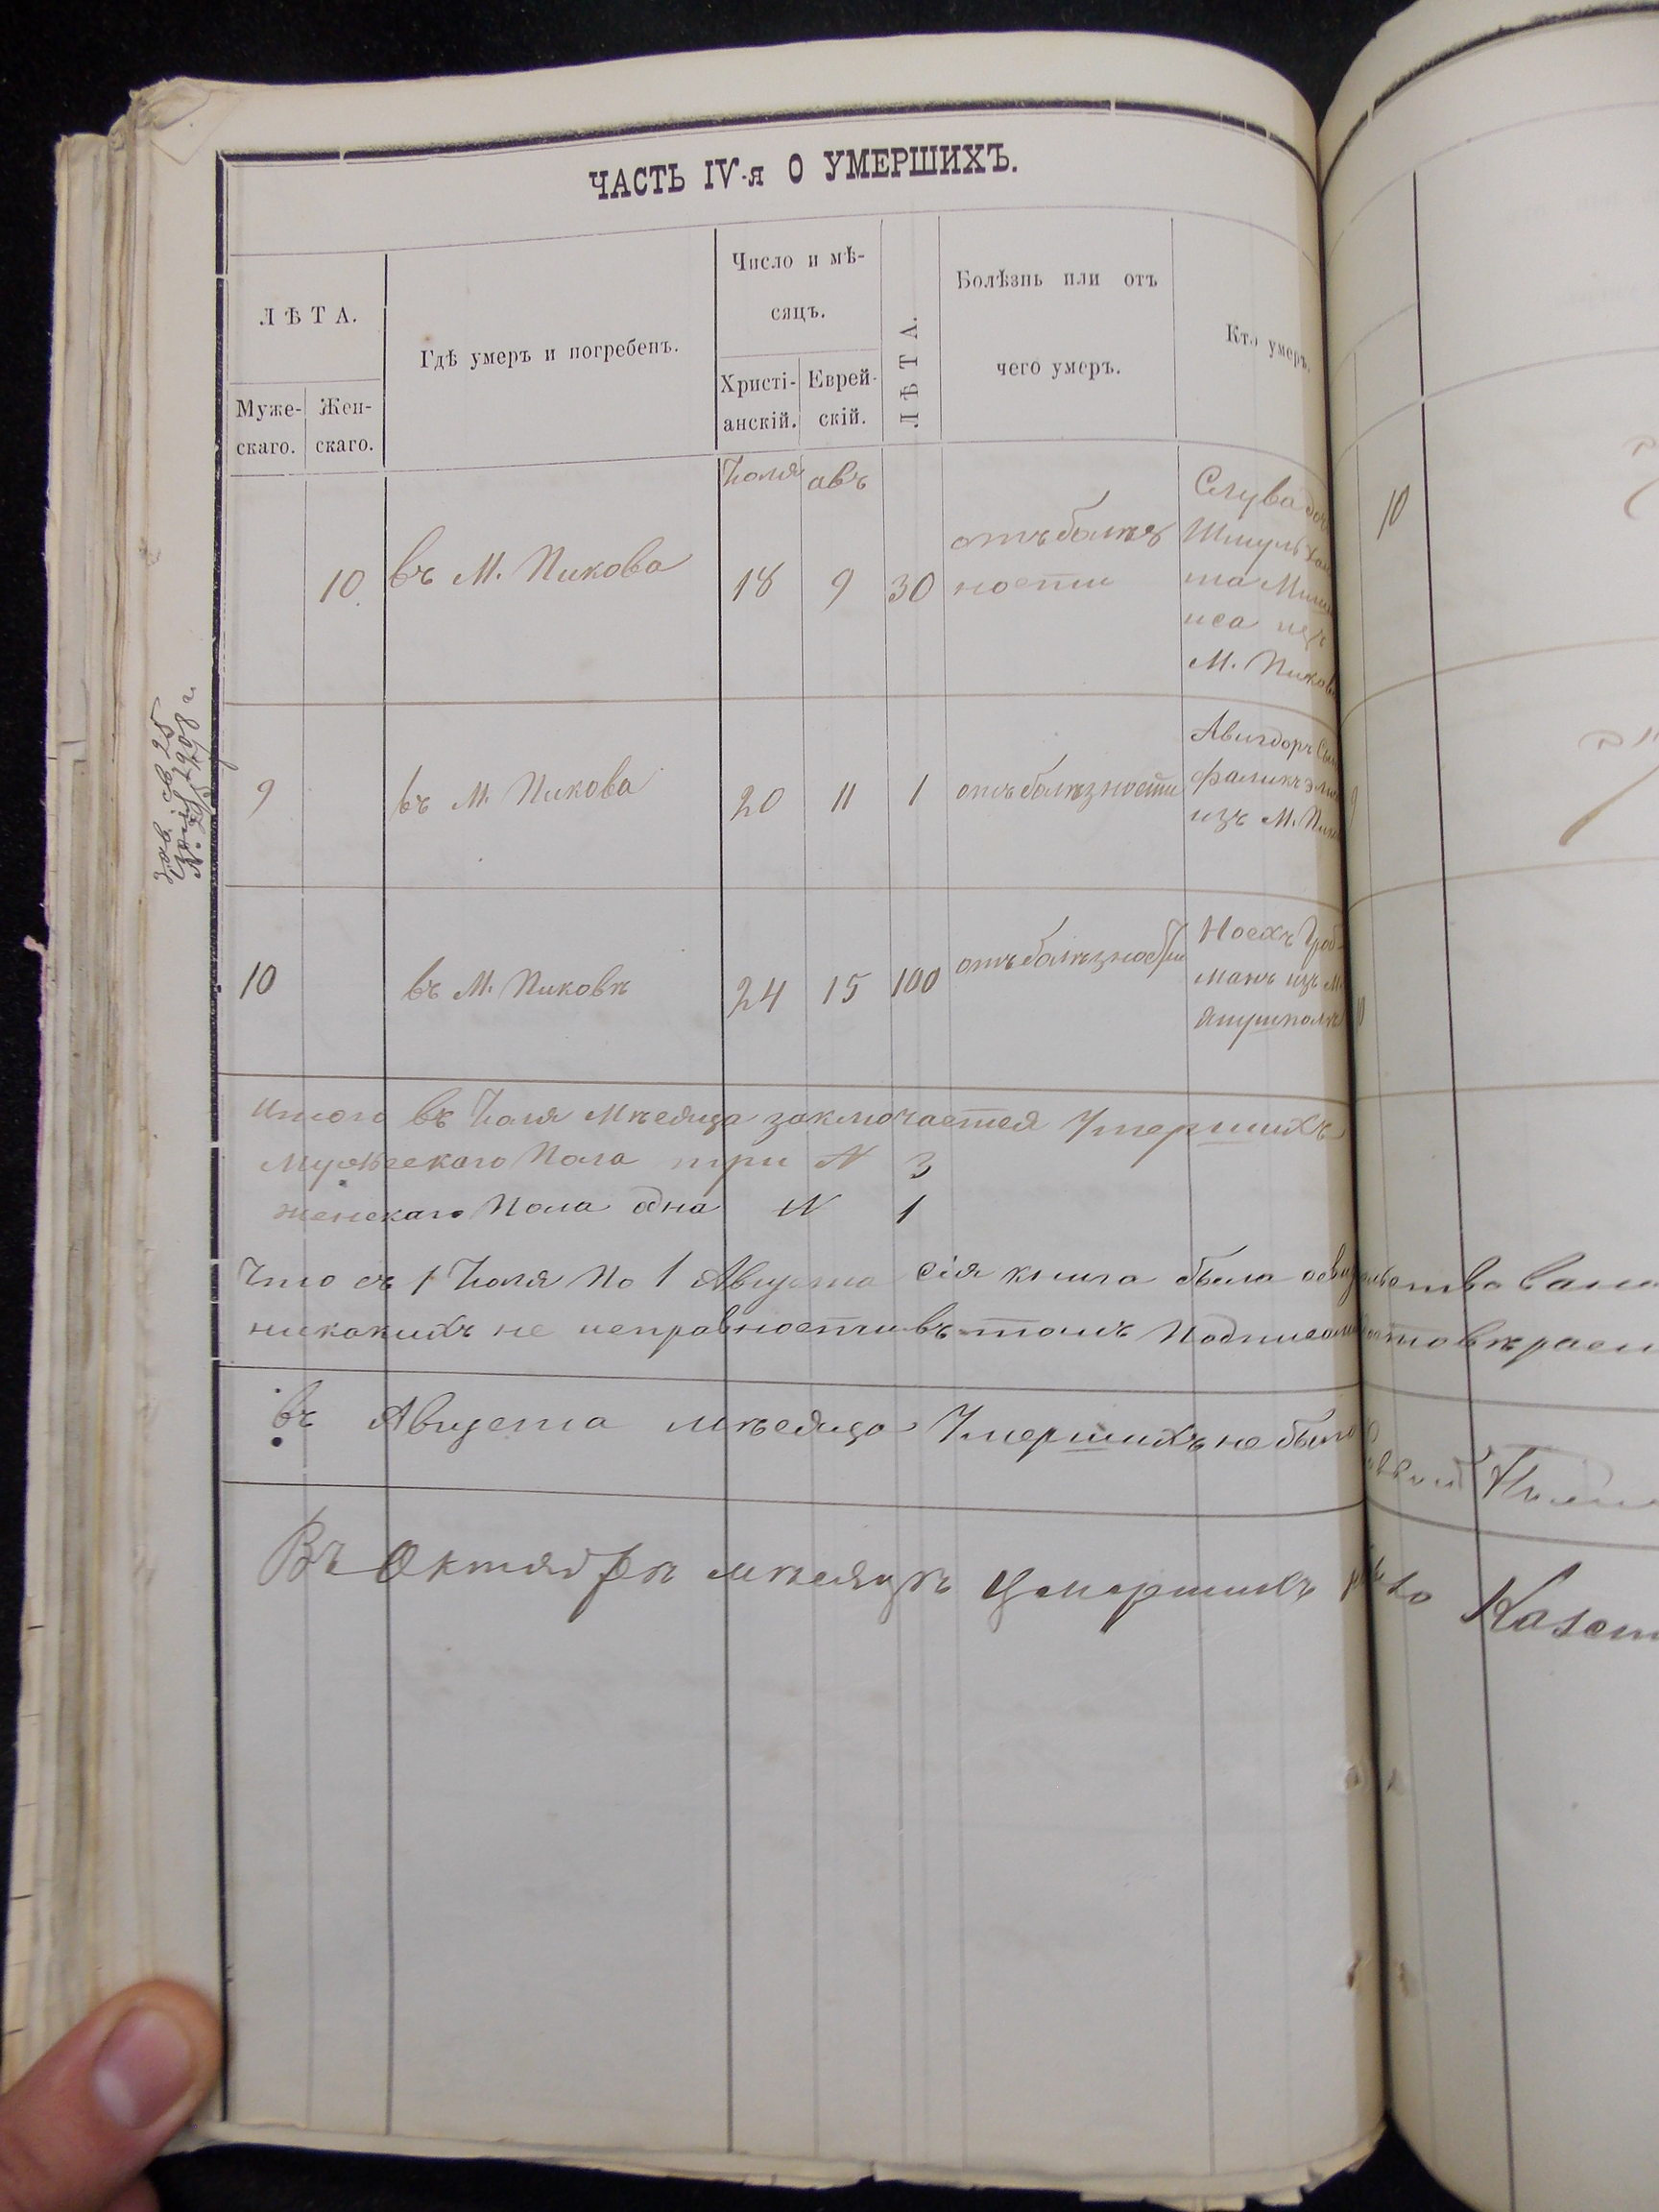 ЧАСТЬ IV-я О УМЕРШИХЪ.
ЛѢТА.
Муже-
скаго.
Жен-
скаго.
Гдѣ умеръ и погребенъ.
Число и мѣ-
сяцъ.
Христі-
анскій.
Еврей-
скій.
ЛѢТА.
Болѣзнь или отъ
чего умеръ.
Кто умеръ.
Іюля авъ
10 въ М. Пикова 18 9 30
отъ болѣз
ности
Слува доч
Шмуль
та
иса изъ
М. Пиков
10
9 въ М. Пикова 20 11 1 отъ болѣзности
Авигдоръ Сын
фаликъ
изъ М. Пик
9
10 въ М. Пиковѣ 24 15 100 отъ болѣзности
Носхъ Гроб
манъ изъ М.
Янушполь
10
Зав. св. 25
Іюля 1908 г.
№
Итого въ Іюля Мѣсяца заключается Умершихъ
Мужескаго Пола три N 3
женскаго Пола одна N 1
Что съ 1 Іюля По 1 Августа сія книга была освидѣтельствована
никакихъ не исправности въ томъ Подписомъ
въ Августа мѣсяца Умершихъ не было
Въ Октябрѣ мѣсяцѣ умершихъ не было Казен